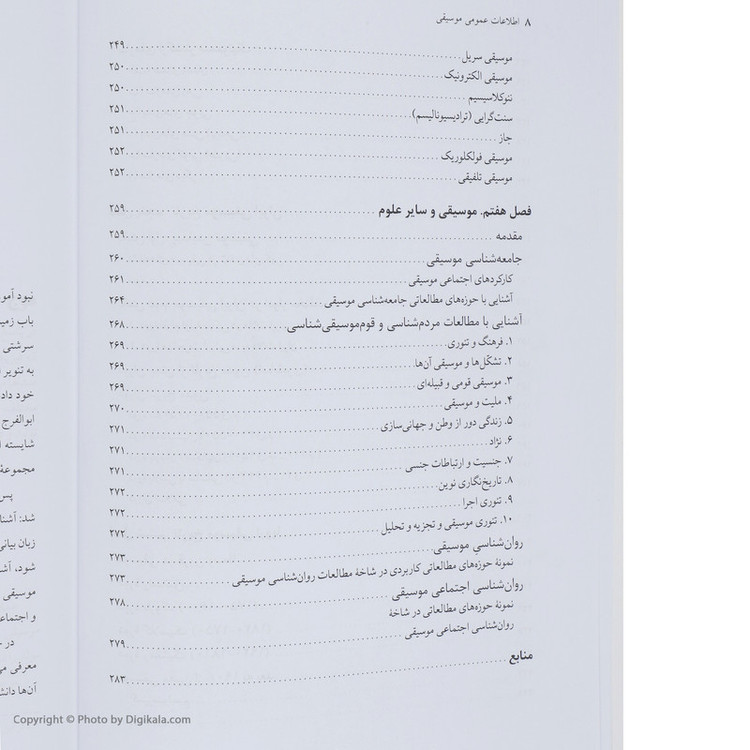 ۸ اطلاعات عمومی موسیقی
موسیقی سریل ۲۴۹
موسیقی الکترونیک ۲۵۰
نئوکلاسیسیم ۲۵۰
سنت‌گرایی (ترادیسیونالیسم) ۲۵۱
جاز ۲۵۱
موسیقی فولکلوریک ۲۵۲
موسیقی تلفیقی ۲۵۲
فصل هفتم. موسیقی و سایر علوم ۲۵۹
مقدمه ۲۵۹
جامعه‌شناسی موسیقی ۲۶۰
کارکردهای اجتماعی موسیقی ۲۶۱
آشنایی با حوزه‌های مطالعاتی جامعه‌شناسی موسیقی ۲۶۴
آشنایی با مطالعات مردم‌شناسی و قوم‌موسیقی‌شناسی ۲۶۸
۱. فرهنگ و تئوری ۲۶۹
۲. تشکّل‌ها و موسیقی آن‌ها ۲۶۹
۳. موسیقی قومی و قبیله‌ای ۲۶۹
۴. ملیت و موسیقی ۲۷۰
۵. زندگی دور از وطن و جهانی‌سازی ۲۷۱
۶. نژاد ۲۷۱
۷. جنسیت و ارتباطات جنسی ۲۷۱
۸. تاریخ‌نگاری نوین ۲۷۲
۹. تئوری اجرا ۲۷۲
۱۰. تئوری موسیقی و تجزیه و تحلیل ۲۷۲
روان‌شناسیِ موسیقی ۲۷۳
نمونهٔ حوزه‌های مطالعاتی کاربردی در شاخهٔ مطالعات روان‌شناسی موسیقی ۲۷۳
روان‌شناسی اجتماعی موسیقی ۲۷۸
نمونهٔ حوزه‌های مطالعاتی در شاخهٔ
روان‌شناسی اجتماعی موسیقی ۲۷۹
منابع ۲۸۳
نبود آمو
باب زمی
سرشتی
به تنویر
خود داد
ابوالفرج
شایسته
مجموعهٔ
پس
شد: آشنا
زبان بیانی
شود، آش
موسیقی
و اجتماع
در
معرفی می
آن‌ها دانش
Copyright © Photo by Digikala.com